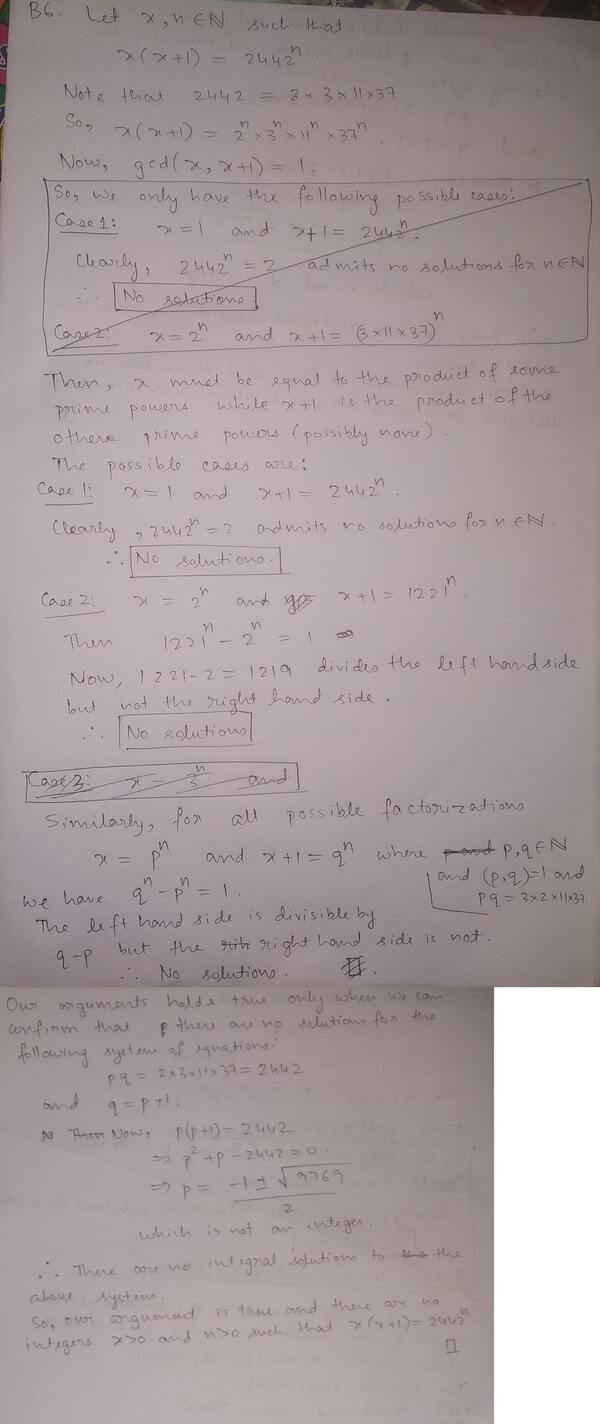 B6. Let x, n ∈ N such that
x(x+1) = 2442^n.
Note that 2442 = 2 × 3 × 11 × 37
So, x(x+1) = 2^n × 3^n × 11^n × 37^n.
Now, gcd(x, x+1) = 1.
So, we only have the following possible cases:
Case 1: x = 1 and x+1 = 2442^n.
Clearly, 2442^n = 2 admits no solutions for n ∈ N
∴ No solutions.
Case 2: x = 2^n and x+1 = (3×11×37)^n
Then, x must be equal to the product of some
prime powers while x+1 is the product of the
other prime powers (possibly none).
The possible cases are:
Case 1: x = 1 and x+1 = 2442^n.
Clearly, 2442^n = 2 admits no solutions for n ∈ N.
∴ No solutions.
Case 2: x = 2^n and x+1 = 1221^n.
Then 1221^n - 2^n = 1
Now, 1221 - 2 = 1219 divides the left hand side
but not the right hand side.
∴ No solutions
Case 3: x = 3^n and
Similarly, for all possible factorizations
x = p^n and x+1 = q^n where p and p, q ∈ N
and (p, q) = 1 and
pq = 3×2×11×37.
we have q^n - p^n = 1.
The left hand side is divisible by
q-p but the right hand side is not.
∴ No solutions.
Our arguments holds true only when we can
confirm that there are no solutions for the
following system of equations:
pq = 2×3×11×37 = 2442
and q = p+1.
Then Now, p(p+1) = 2442
⇒ p^2 + p - 2442 = 0.
⇒ p = -1 ± √9769
2
which is not an integer.
∴ There are no integral solutions to the the
above system.
So, our argument is true and there are no
integers x>0 and n>0 such that x(x+1) = 2442^n.